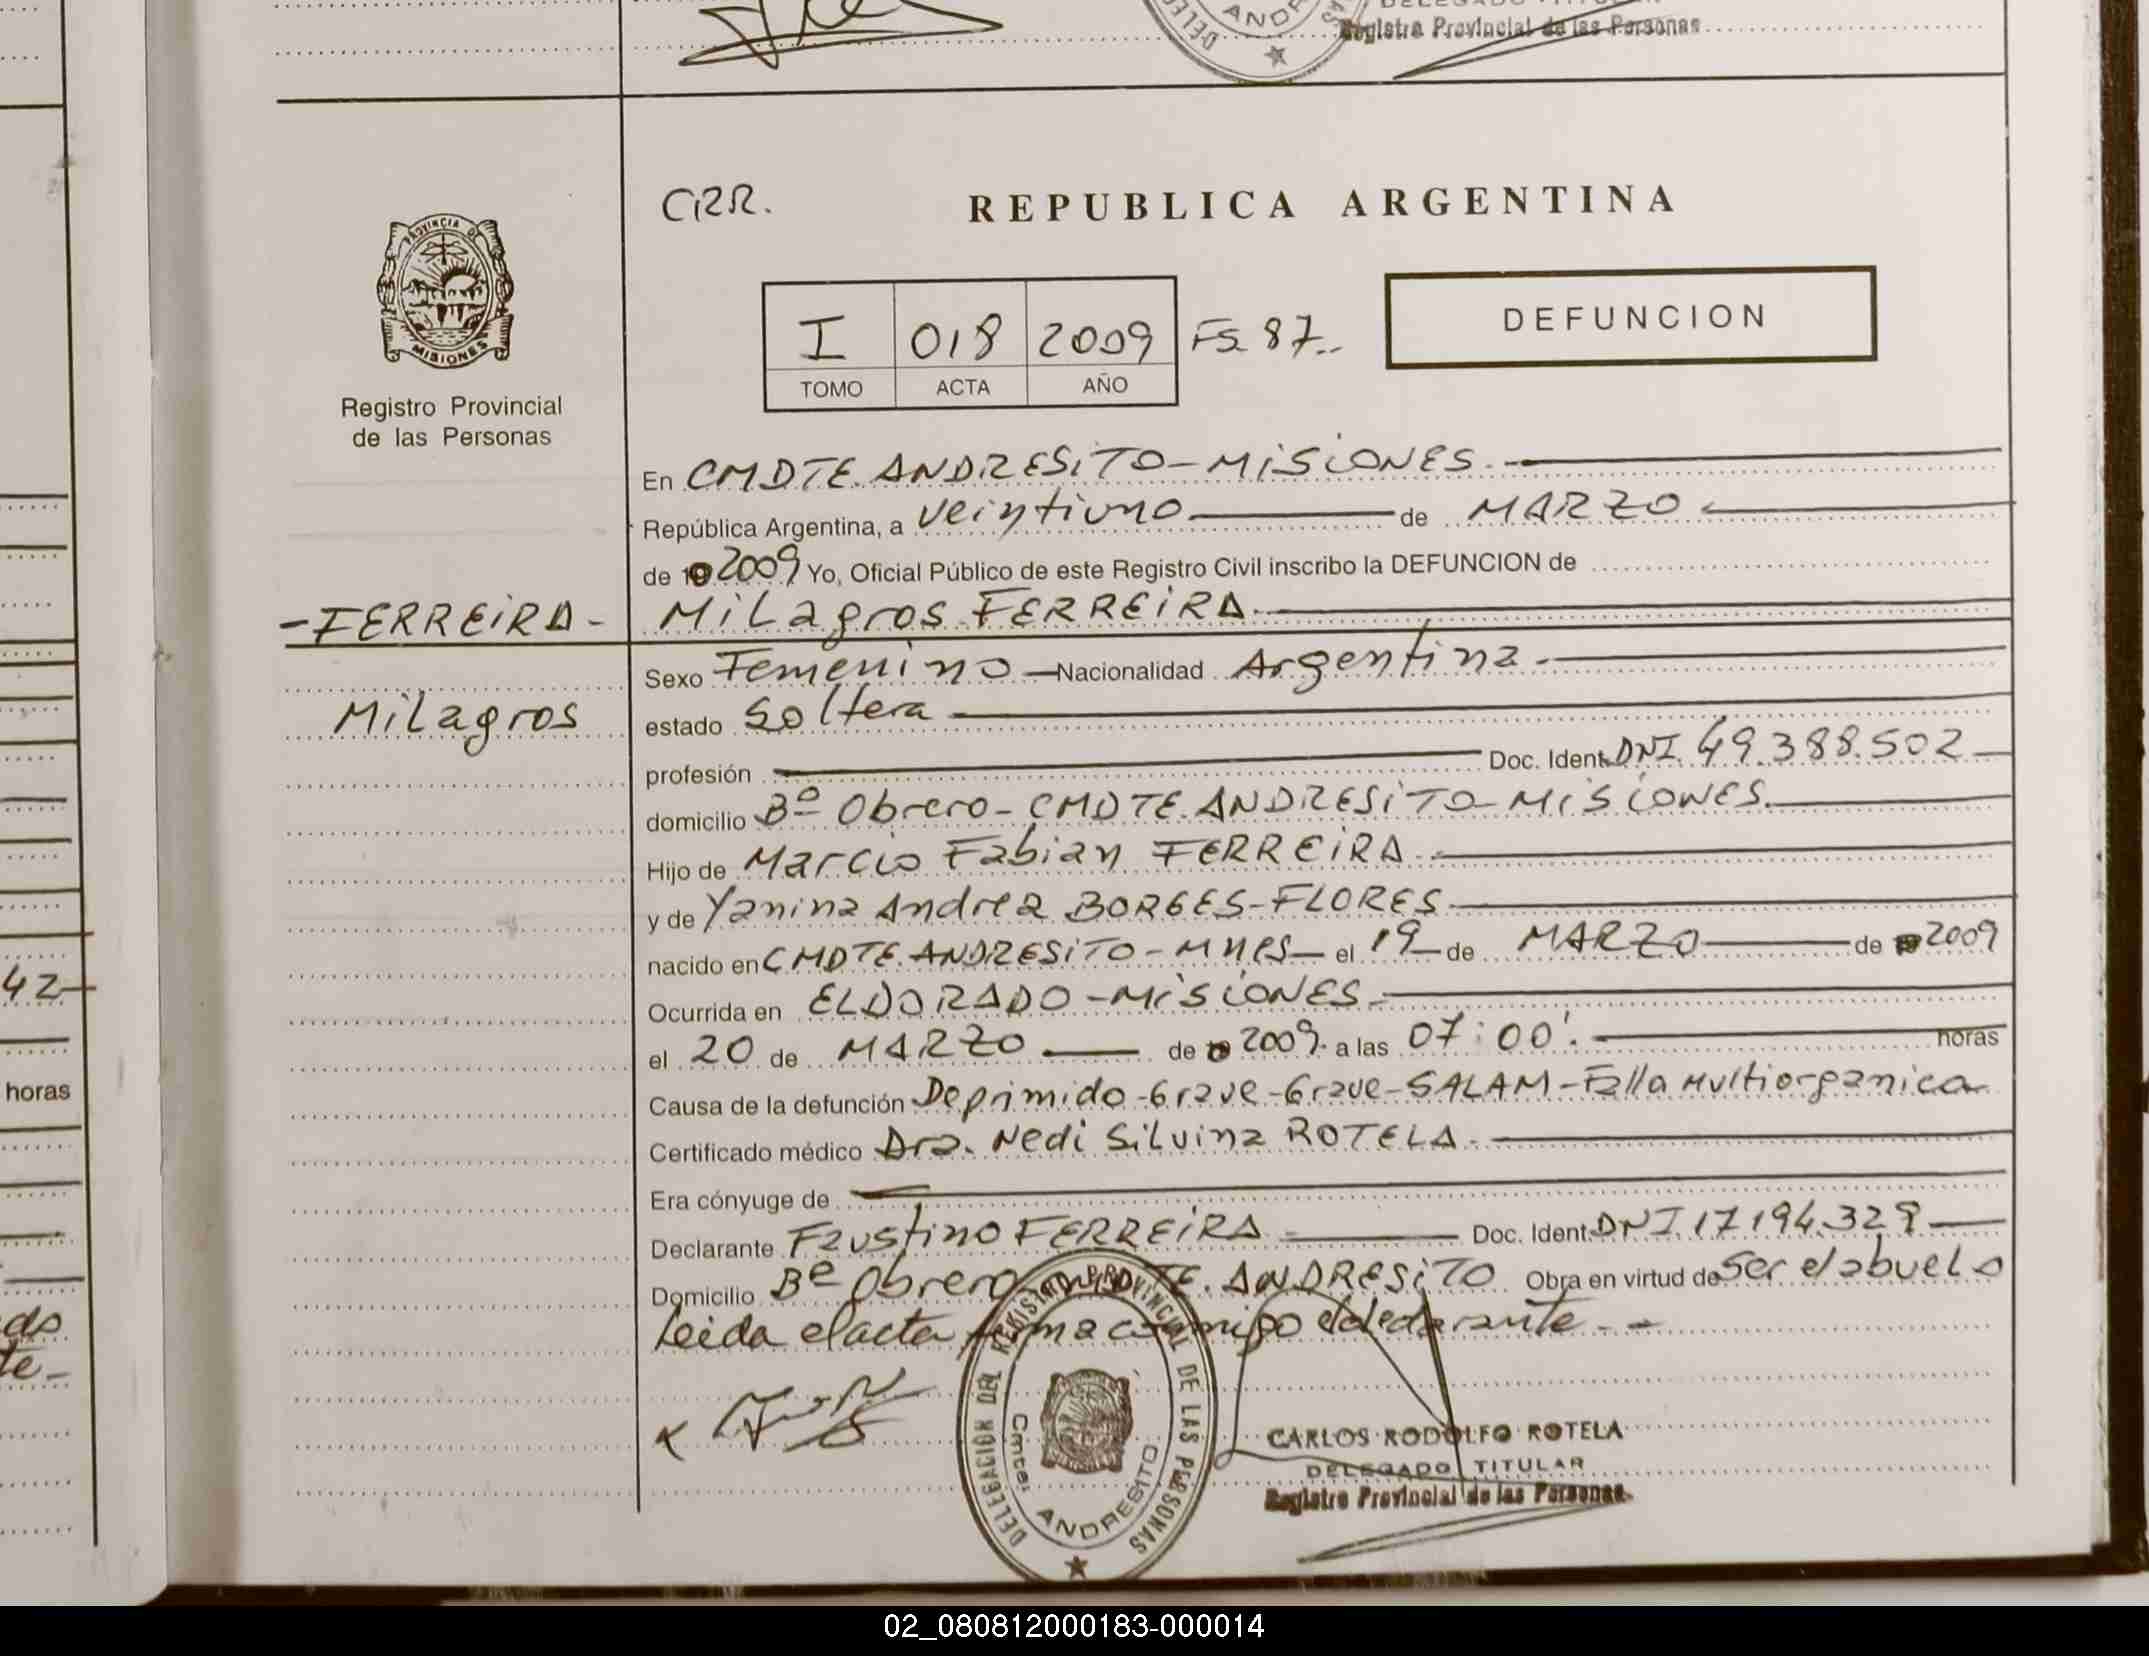 Registro Provincial de las Personas
PROVINCIA DE
MISIONES
Registro Provincial
de las Personas
CRR.
REPUBLICA ARGENTINA
I 018 2009 Fs. 87..
TOMO ACTA AÑO
DEFUNCION
En CMDTE. ANDRESITO - MISIONES.
República Argentina, a veintiuno de MARZO
de 2009 Yo, Oficial Público de este Registro Civil inscribo la DEFUNCION de
- FERREIRA -
Milagros FERREIRA
Milagros
Sexo Femenino Nacionalidad Argentina
estado Soltera
profesión Doc. Ident. DNI. 49.388.502
domicilio Bº Obrero - CMDTE. ANDRESITO - MISIONES.
Hijo de Marcio Fabian FERREIRA
y de Yanina Andrea BORGES-FLORES
nacido en CMDTE. ANDRESITO - Mnes el 19 de MARZO de 2009
Ocurrida en ELDORADO - MISIONES.
el 20 de MARZO de 2009. a las 07:00'. horas
Causa de la defunción Deprimido - Grave - Grave - SALAM - Falla Multiorganica
Certificado médico Dra. Nedi Silvina ROTELA.
Era cónyuge de
Declarante Faustino FERREIRA Doc. Ident. DNI. 17.194.329
Domicilio Bº Obrero CMDTE. ANDRESITO Obra en virtud de Ser el abuelo
Leida el acta firma conmigo el declarante. -
DELEGACION DEL REGISTRO PROVINCIAL DE LAS PERSONAS
Cmte. ANDRESITO
CARLOS RODOLFO ROTELA
DELEGADO TITULAR
Registro Provincial de las Personas
42
horas
02_080812000183-000014